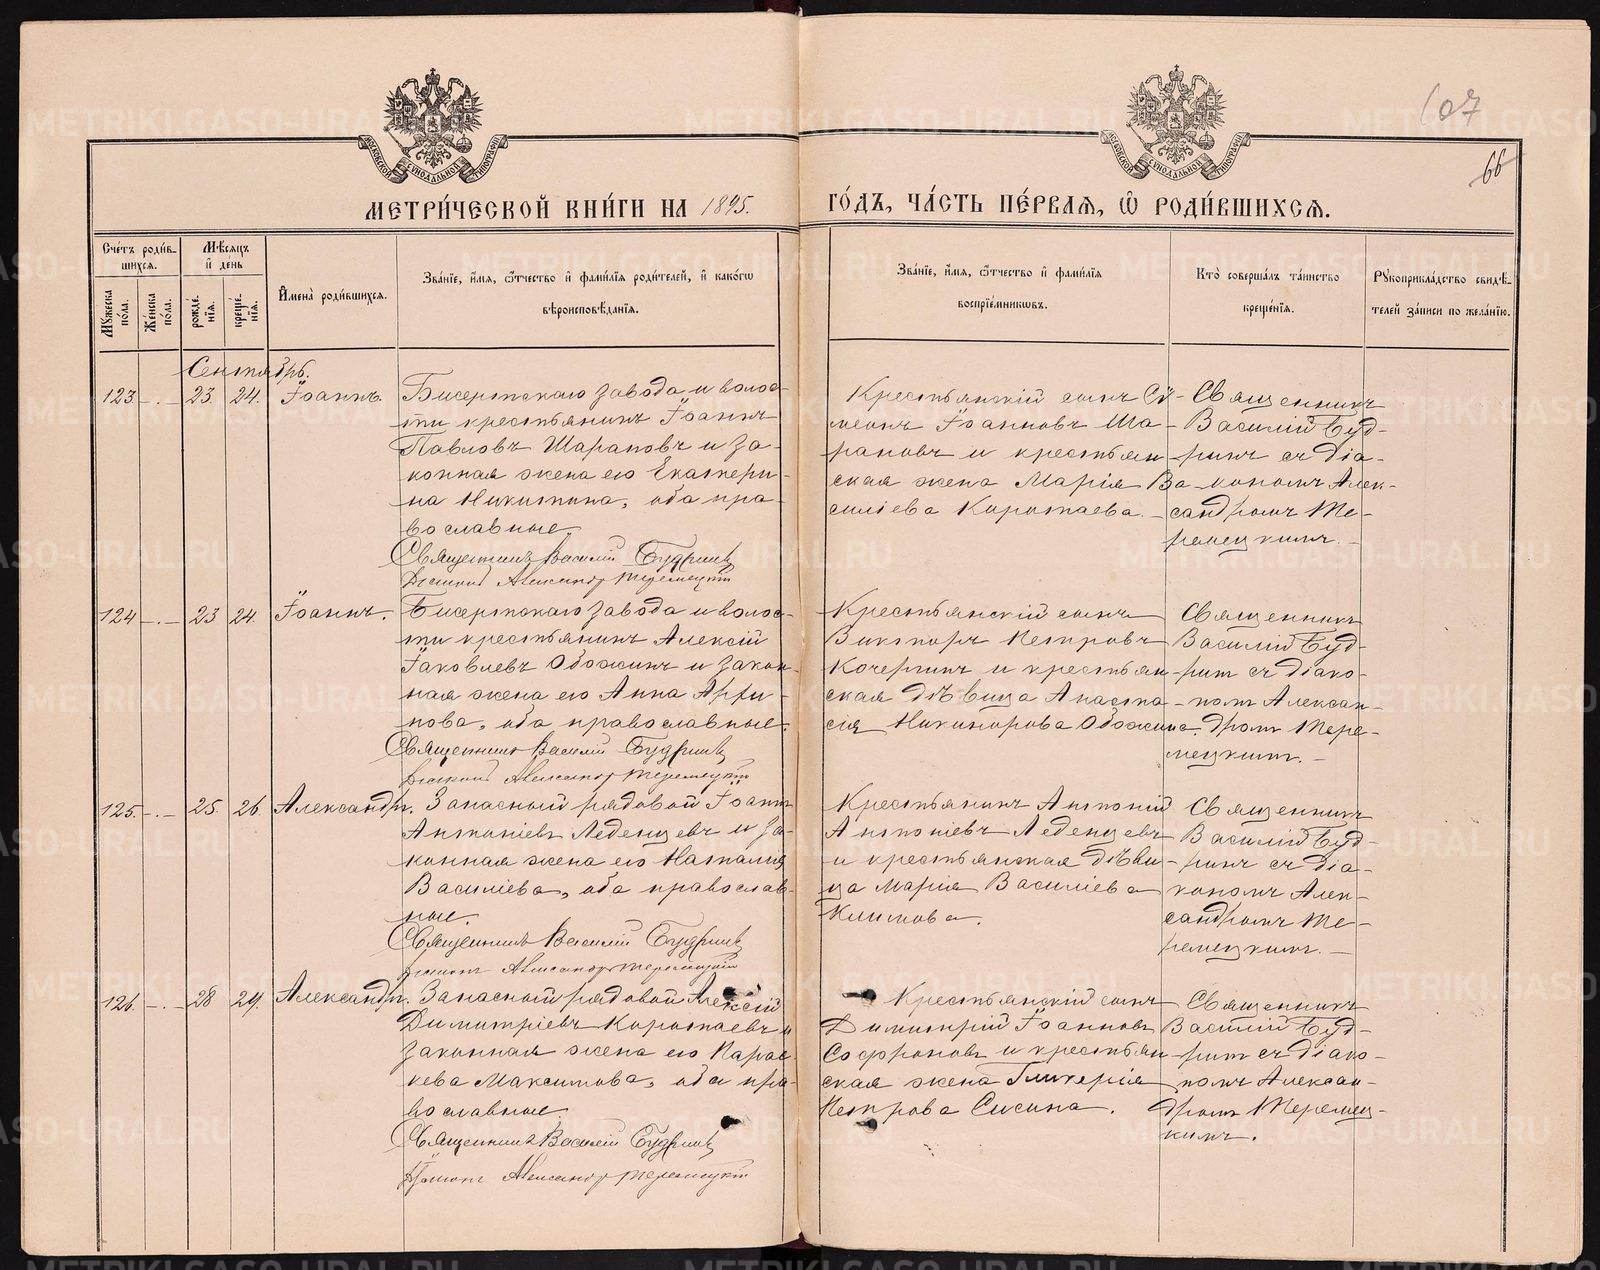 607
66
МОСКОВСКОЙ СѴНОДАЛЬНОЙ ТИПОГРАФІИ
МОСКОВСКОЙ СѴНОДАЛЬНОЙ ТИПОГРАФІИ
МЕТРИ́ЧЕСКОЙ КНИ́ГИ НА 1895.
ГО́ДЪ, ЧА́СТЬ ПЕ́РВАѦ, Ѽ РОДИ́ВШИХСѦ.
Сче́тъ роди́в-
шихсѧ.
Мꙋжеска по́ла.
Же́нска по́ла.
Мѣ́сѧцъ
и҆ де́нь
рожде́нїѧ.
креще́нїѧ.
И҆мена̀ роди́вшихсѧ.
Зва́нїе, и҆́мѧ, ѻ҆́тчество и҆ фами́лїѧ роди́телей, и҆ како́гѡ
вѣроисповѣ́данїѧ.
Зва́нїе, и҆́мѧ, ѻ҆́тчество и҆ фами́лїѧ
воспрїе́мникѡвъ.
Кто̀ соверша́лъ та́инство
креще́нїѧ.
Рꙋкоприкла́дство свидѣ́-
телей за́писи по жела́нїю.
Сентябрь.
123 - . - 23. 24. Іоаннъ.
Бисертскаго завода и волос-
ти крестьянинъ Іоаннъ
Павловъ Шараповъ и за-
конная жена его Екатери-
на Никитина, оба пра-
вославные.
Священникъ Василій Будринъ
Діаконъ Александръ Теремецкій
Крестьянскій сынъ Сѵ-
меонъ Іоанновъ Ша-
раповъ и крестьян-
ская жена Марія Ва-
силіева Коротаева.
Священникъ
Василій Буд-
ринъ съ діа-
кономъ Алек-
сандромъ Те-
ремецкимъ.
124 - . - 23 24. Іоаннъ.
Бисертскаго завода и волос-
ти крестьянинъ Алексій
Іаковлевъ Обожинъ и закон-
ная жена его Анна
нова, оба православные.
Священникъ Василій Будринъ
Діаконъ Александръ Теремецкій
Крестьянскій сынъ
Викторъ Петровъ
Кочергинъ и крестьян-
ская дѣвица Анаста-
сія Никанорова Обожина.
Священникъ
Василій Буд-
ринъ съ діако-
номъ Алексан-
дромъ Тере-
мецкимъ.
125. - . - 25. 26. Александръ.
Запасный рядовой Іоаннъ
Антоніевъ Леденцевъ и за-
конная жена его Наталия
Василіева, оба православ-
ные.
Священникъ Василій Будринъ
Діаконъ Александръ Теремецкій
Крестьянинъ Антоній
Антоніевъ Леденцевъ
и крестьянская дѣви-
ца Марія Василіева
Климова.
Священникъ
Василій Буд-
ринъ съ діа-
кономъ Алек-
сандромъ Те-
ремецкимъ.
126. - . - 28 29. Александръ.
Запасный рядовой Алексій
Димитріевъ Коротаевъ и
законная жена его Парас-
кева Максимова, оба пра-
вославные.
Священникъ Василій Будринъ
Діаконъ Александръ Теремецкій
Крестьянскій сынъ
Димитрій Іоанновъ
Софроновъ и крестьян-
ская жена Гликерія
Петрова Сисина.
Священникъ
Василій Буд-
ринъ съ діако-
номъ Алексан-
дромъ Теремец-
кимъ.
METRIKI.GASO-URAL.RU